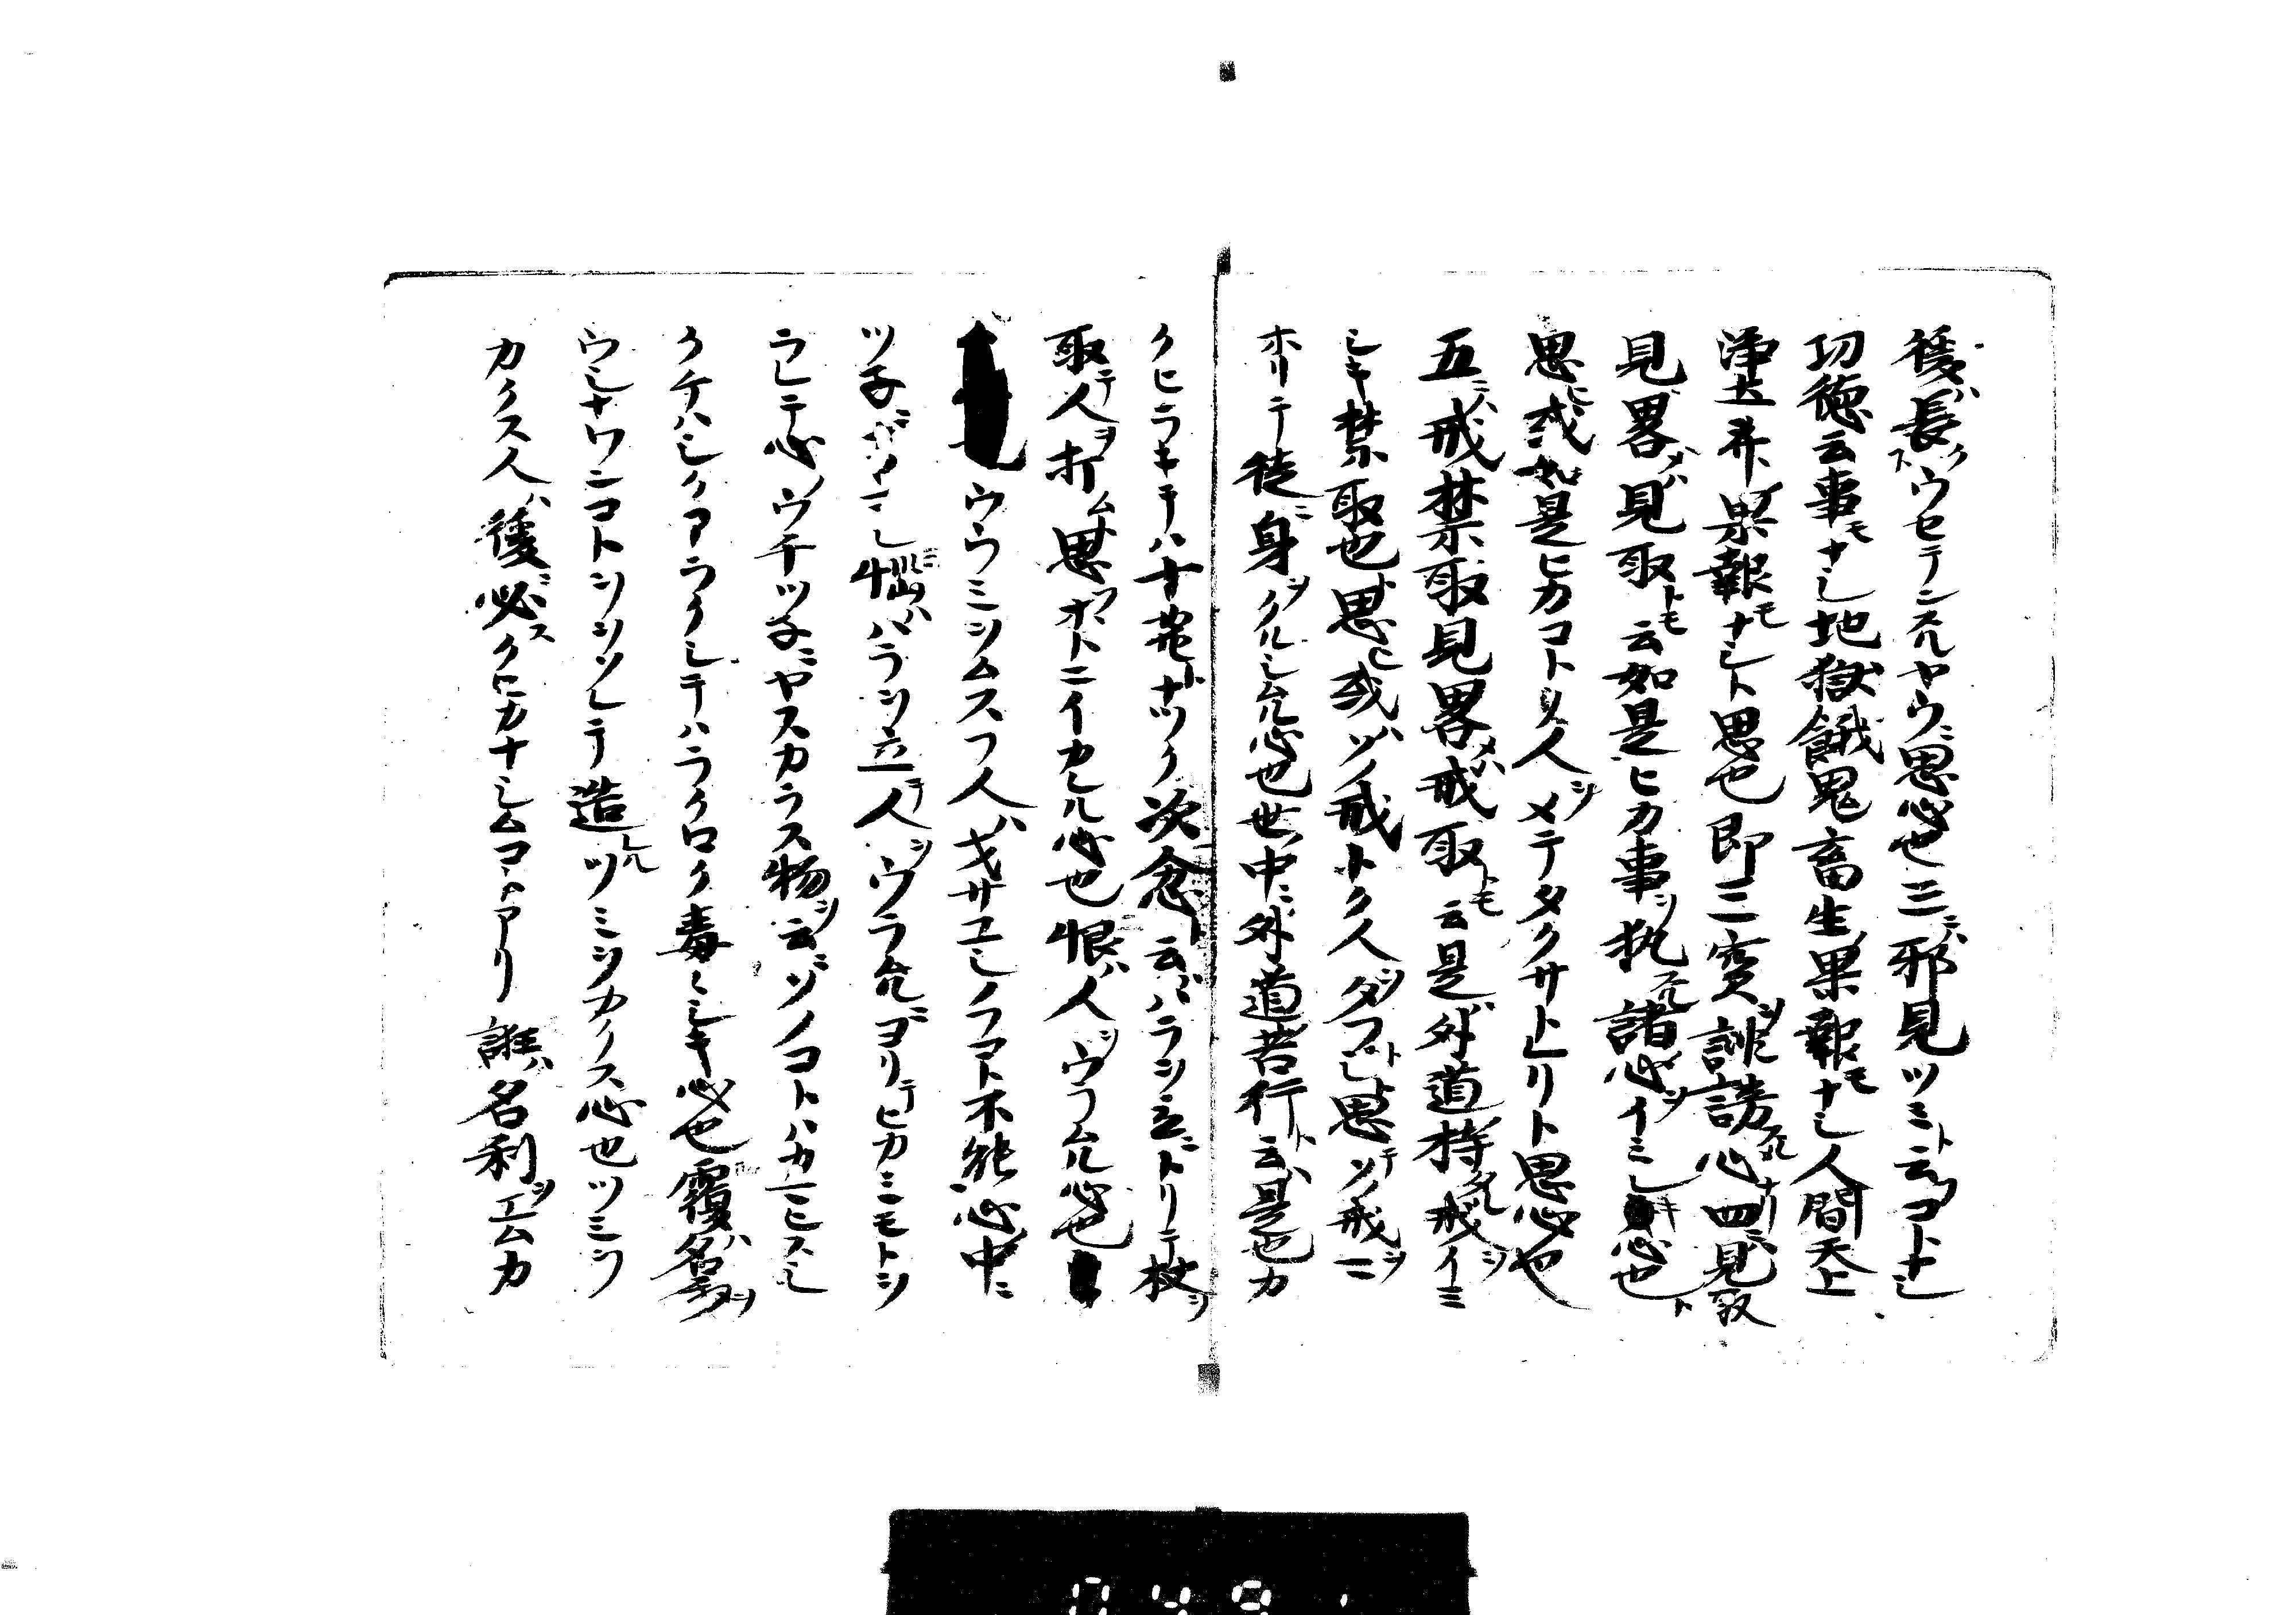 後ハ長クウセテンスルヤウニ思心也三ニハ邪見ツミト云コトナシ
功徳云事モナシ地獄餓鬼畜生ノ果報モナシ人間天上
浄土井ノ果報モナシト思也即三寳ヲ誹謗スル心ナリ四ニ見取
見畧メハ見取トモ云如是ヒカ事ヲ執スル諸ノ心ヲイミシキ心也ト
思ヒ或如是ヒカコトノ人ヲメテタクサトレリト思心也
五ニハ戒禁取見畧メハ戒取トモ云是ハ外道ノ持タル戒ヲイミ
シキ禁取也ト思ヒ或ハソノ戒トク人ヲタフトシト思テソノ戒ヲ
ホリテ徒ニ身ヲクルシムル心也世ノ中ニ外道苦行ト云ハ是也カ
クヒラキキハ十発トナツク次忿ト云ハハラソ立ニトリテ杖ヲ
取テ人ヲ打ムト思フホトニイカレル心也恨ハ人ヲウラムル心也
ウラミヲムスフ人ハヲサエシノフコト不能心ノ中ニ
ツネニ 悩ハハラソ立テ人ヲウラムルニヨリテヒカミモトリ
ラレテ心ノウチツネニヤスカラス物ヲ云ニソノコトハカマヒスシ
クケハシクアラクシテハラクロク毒々シキ心也覆ハ名利ヲ
ウシナワンコトヲソレテ造レルツミヲカクス心也ツミヲ
カクス人ハ後ニ必スクヒカナシムコトアリ 誑ハ名利ヲエムカ